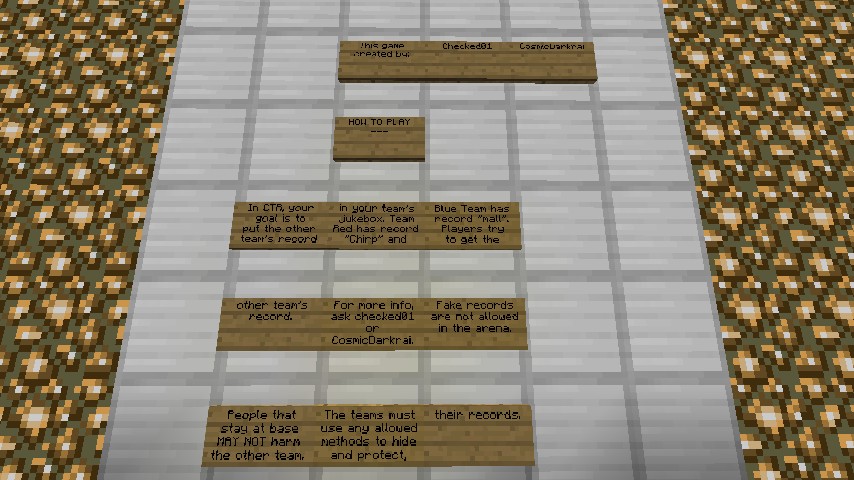 This game
created by:
Checked01
CosmicDarkrai
HOW TO PLAY
---
In CTR, your
goal is to
put the other
team's record
in your team's
jukebox. Team
Red has record
"Chirp" and
Blue Team has
record "mall".
Players try
to get the
other team's
record.
For more info,
ask checked01
or
CosmicDarkrai.
Fake records
are not allowed
in the arena.
People that
stay at base
MAY NOT harm
the other team.
The teams must
use any allowed
methods to hide
and protect,
their records.